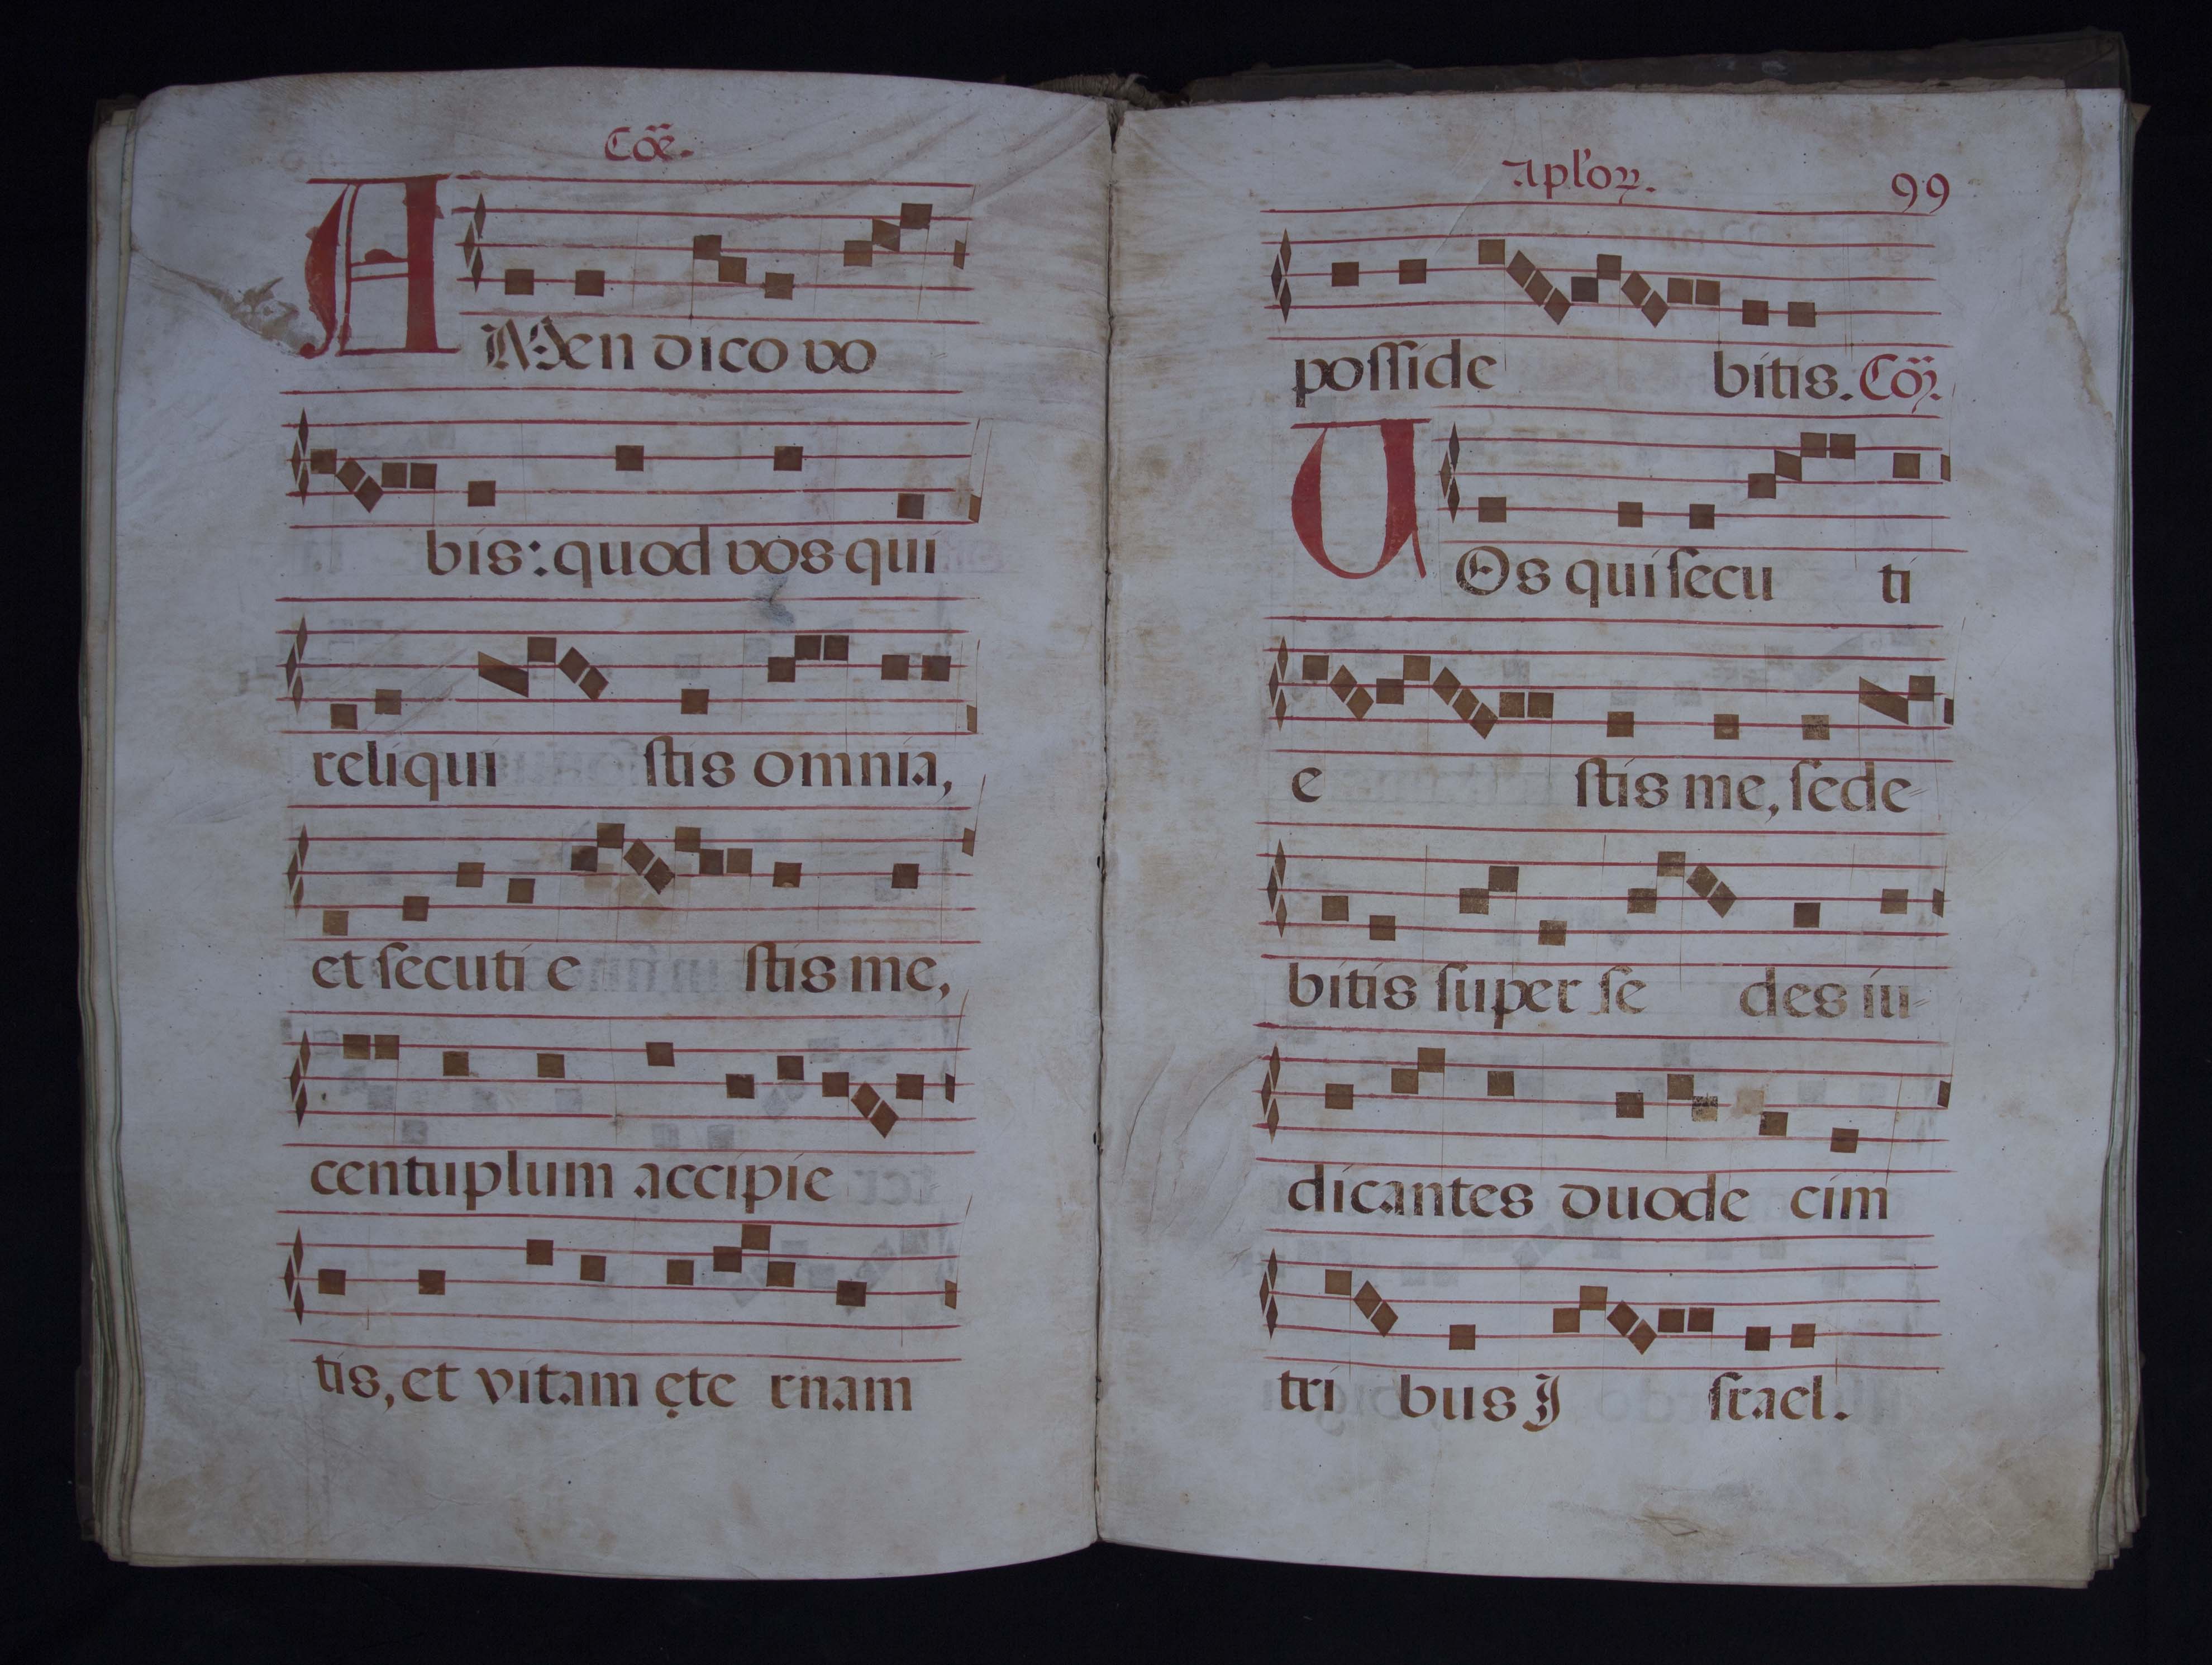 Cõẽ.
AMen dico vo
bis: quod vos qui
reliqui ſtis omnia,
et ſecuti e ſtis me,
centuplum accipie
tis, et vitam ęte rnam
Apl'oꝝ. 99
poſſide bitis. Cõ.
VOs qui ſecu ti
e ſtis me, ſede-
bitis ſuper ſe des iu-
dicantes duode cim
tri bus J ſrael.